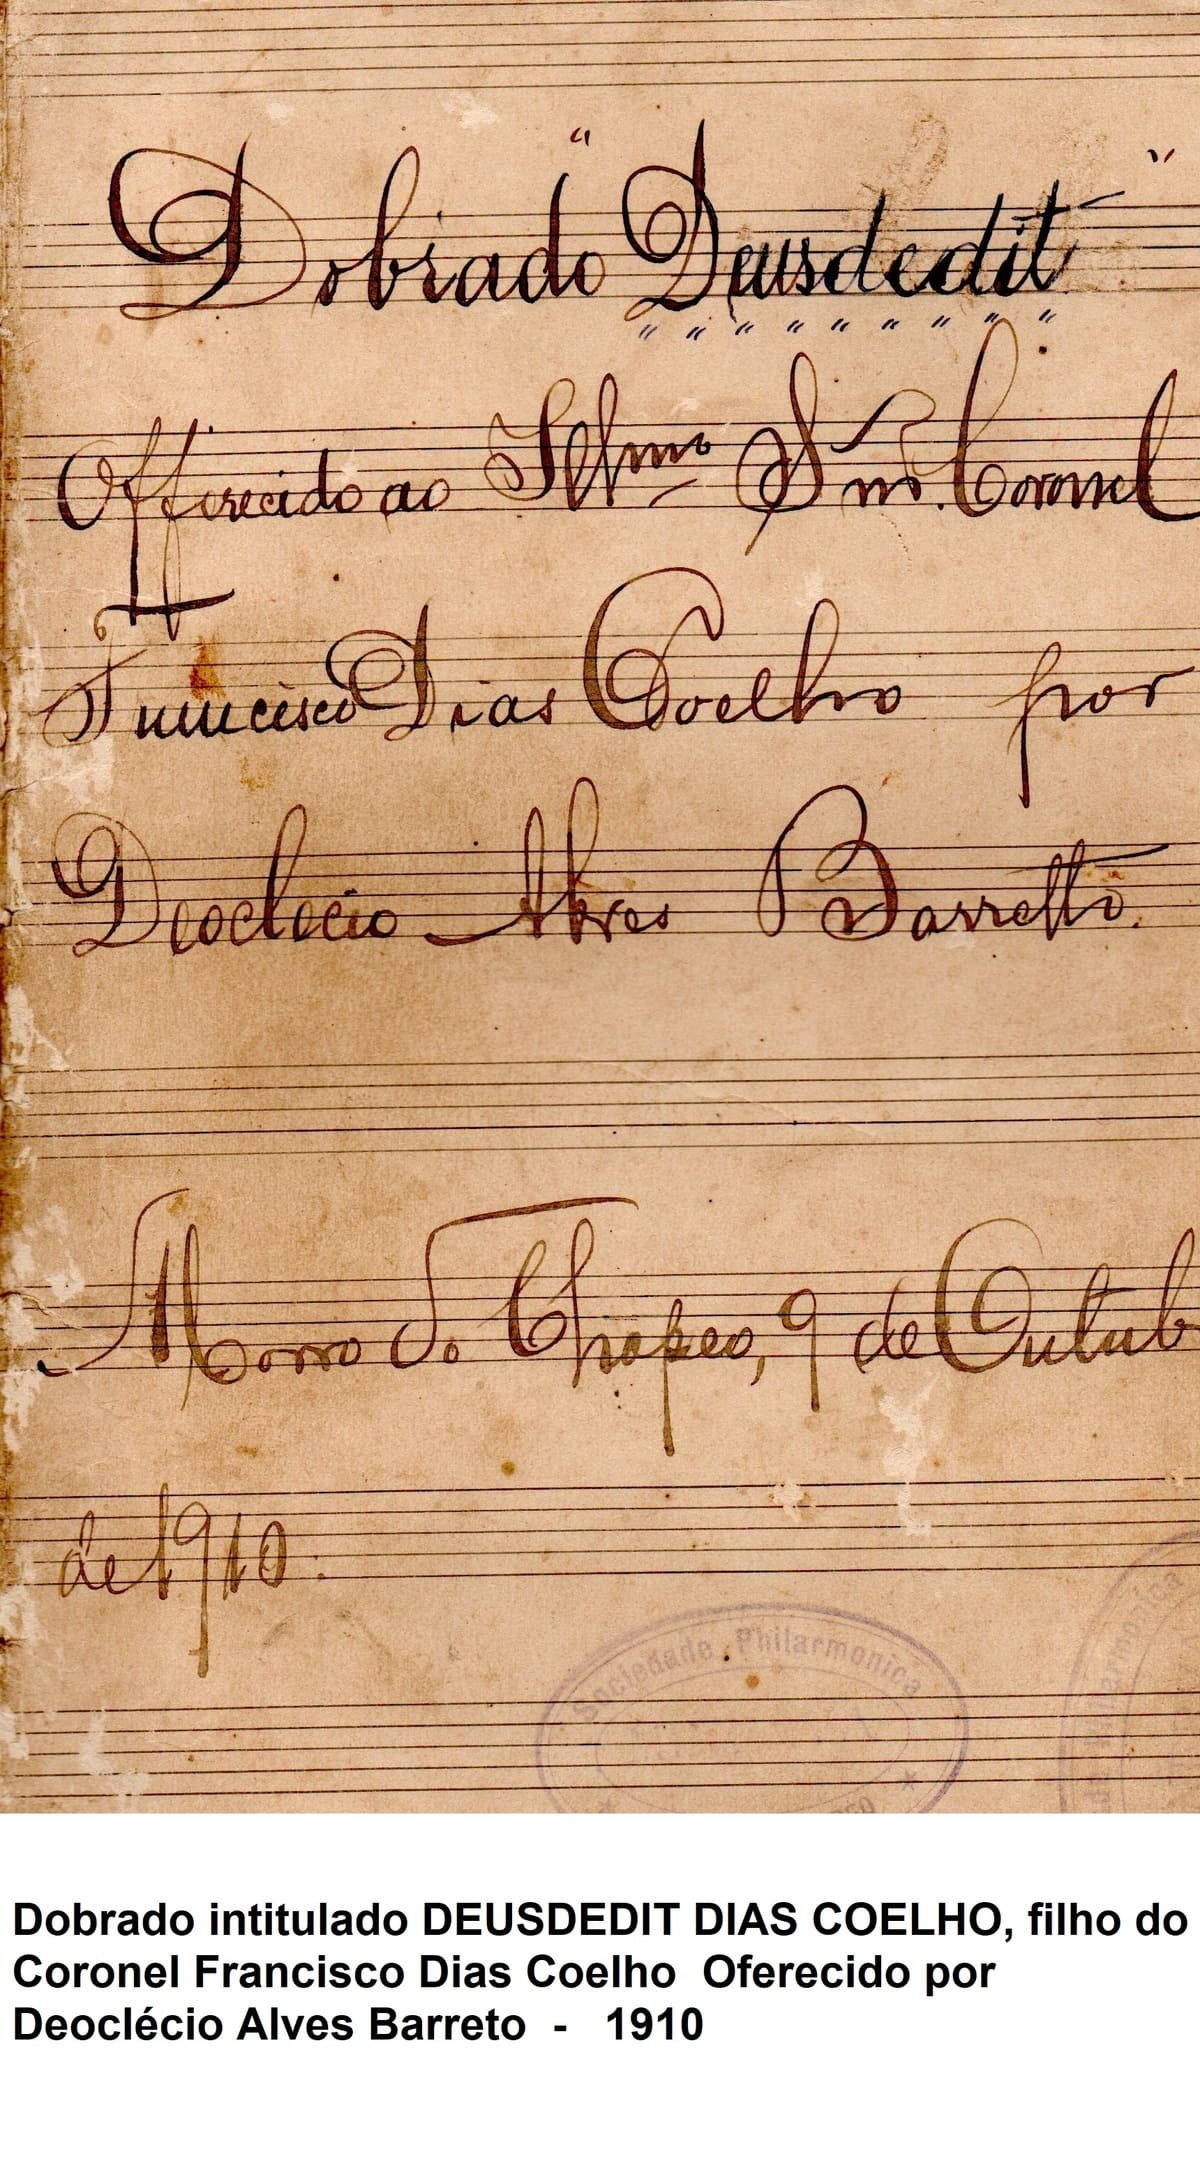 Dobrado "Deusdedit"
Offerecido ao Illmo Snr. Coronel
Francisco Dias Coelho por
Deoclecio Alves Barretto.
Morro do Chapeo, 9 de Outub
de 1910.
Sociedade Philarmonica
Dobrado intitulado DEUSDEDIT DIAS COELHO, filho do
Coronel Francisco Dias Coelho Oferecido por
Deoclécio Alves Barreto - 1910